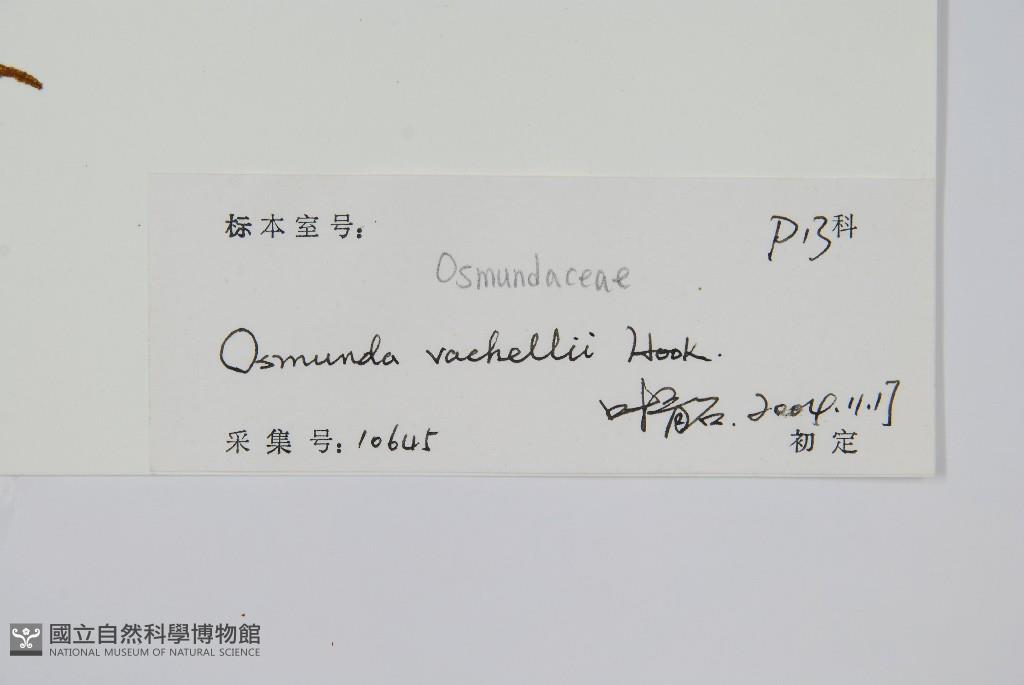 标本室号:
P13科
Osmundaceae
Osmunda vachellii Hook.
叶育石. 2004.11.17
采集号: 10645
初定
國立自然科學博物館
NATIONAL MUSEUM OF NATURAL SCIENCE